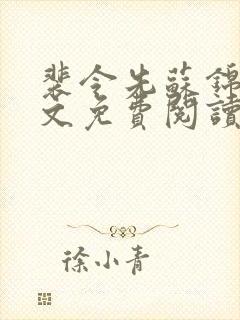 裴令先蘇錦
文免費閱讀
徐小青